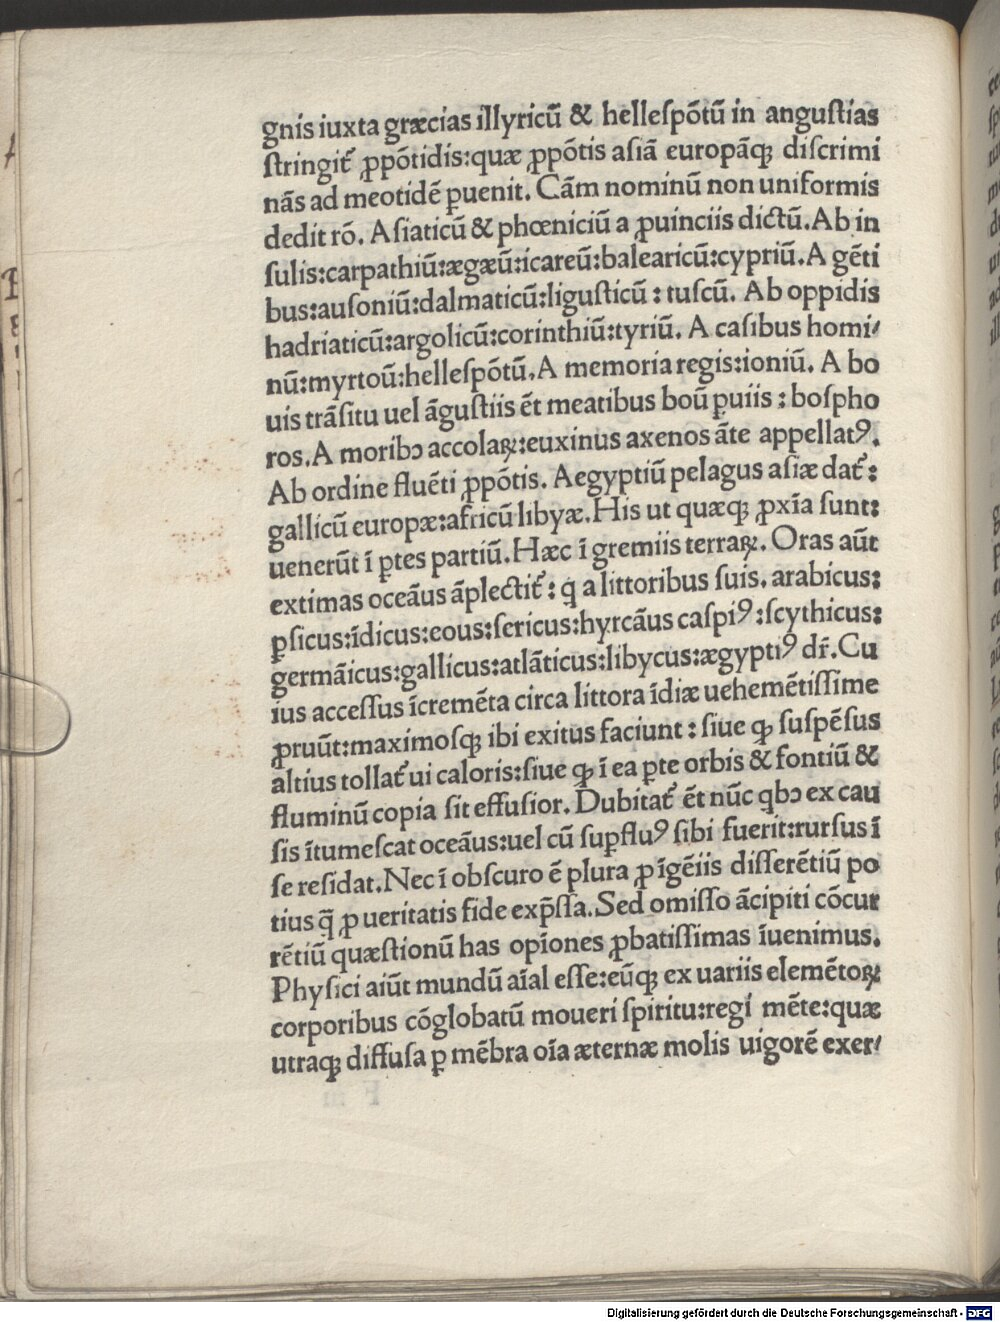 gnis iuxta græcias illyricū & hellespōtū in angustias
stringit᷑ ꝓpōtidis:quæ ꝓpōtis asiā europāꝙ discrimi
nās ad meotidē ꝑuenit. Cām nominū non uniformis
dedit rō. Asiaticū & phœniciū a ꝓuinciis dictū. Ab in
sulis:carpathiū:ægæū:icareū:balearicū:cypriū. A gēti
bus:ausoniū:dalmaticū:ligusticū : tuscū. Ab oppidis
hadriaticū:argolicū:corinthiū:tyriū. A casibus homi/
nū:myrtoū:hellespōtū. A memoria regis:ioniū. A bo
uis trāsitu uel āgustiis ēt meatibus boū ꝑuiis : bospho
ros. A moribꝰ accolaꝝ:euxinus axenos āte appellatꝰ.
Ab ordine fluēti ꝓpōtis. Aegyptiū pelagus asiæ dat᷑:
gallicū europæ:africū libyæ. His ut quæꝙ ꝓxīa sunt:
uenerūt ī ꝑtes partiū. Hæc ī gremiis terraꝝ. Oras aūt
extimas oceāus āplectit᷑ : q̇ a littoribus suis. arabicus:
ꝑsicus:īdicus:eous:sericus:hyrcāus caspiꝰ:scythicus:
germāicus:gallicus:atlāticus:libycus:ægyptiꝰ dr̄. Cu
ius accessus īcremēta circa littora īdiæ uehemētissime
ꝓruūt:maximosꝙ ibi exitus faciunt : siue ꝙ suspēsus
altius tollat᷑ ui caloris:siue ꝙ ī ea ꝑte orbis & fontiū &
fluminū copia sit effusior. Dubitat᷑ ēt nūc qbꝰ ex cau
sis ītumescat oceāus:uel cū suꝑfluꝰ sibi fuerit:rursus ī
se residat. Nec ī obscuro ē plura ꝓ īgēiis disserētiū po
tius q̄̃ ꝓ ueritatis fide exp̄ssa. Sed omisso ācipiti cōcur
rētiū quæstionū has opiones ꝓbatissimas īuenimus.
Physici aiūt mundū aīal esse:eūꝙ ex uariis elemētoꝝ
corporibus cōglobatū moueri spiritu:regi mēte:quæ
utraꝙ diffusa ꝑ mēbra oīa æternæ molis uigorē exer/
Digitalisierung gefördert durch die Deutsche Forschungsgemeinschaft - DFG